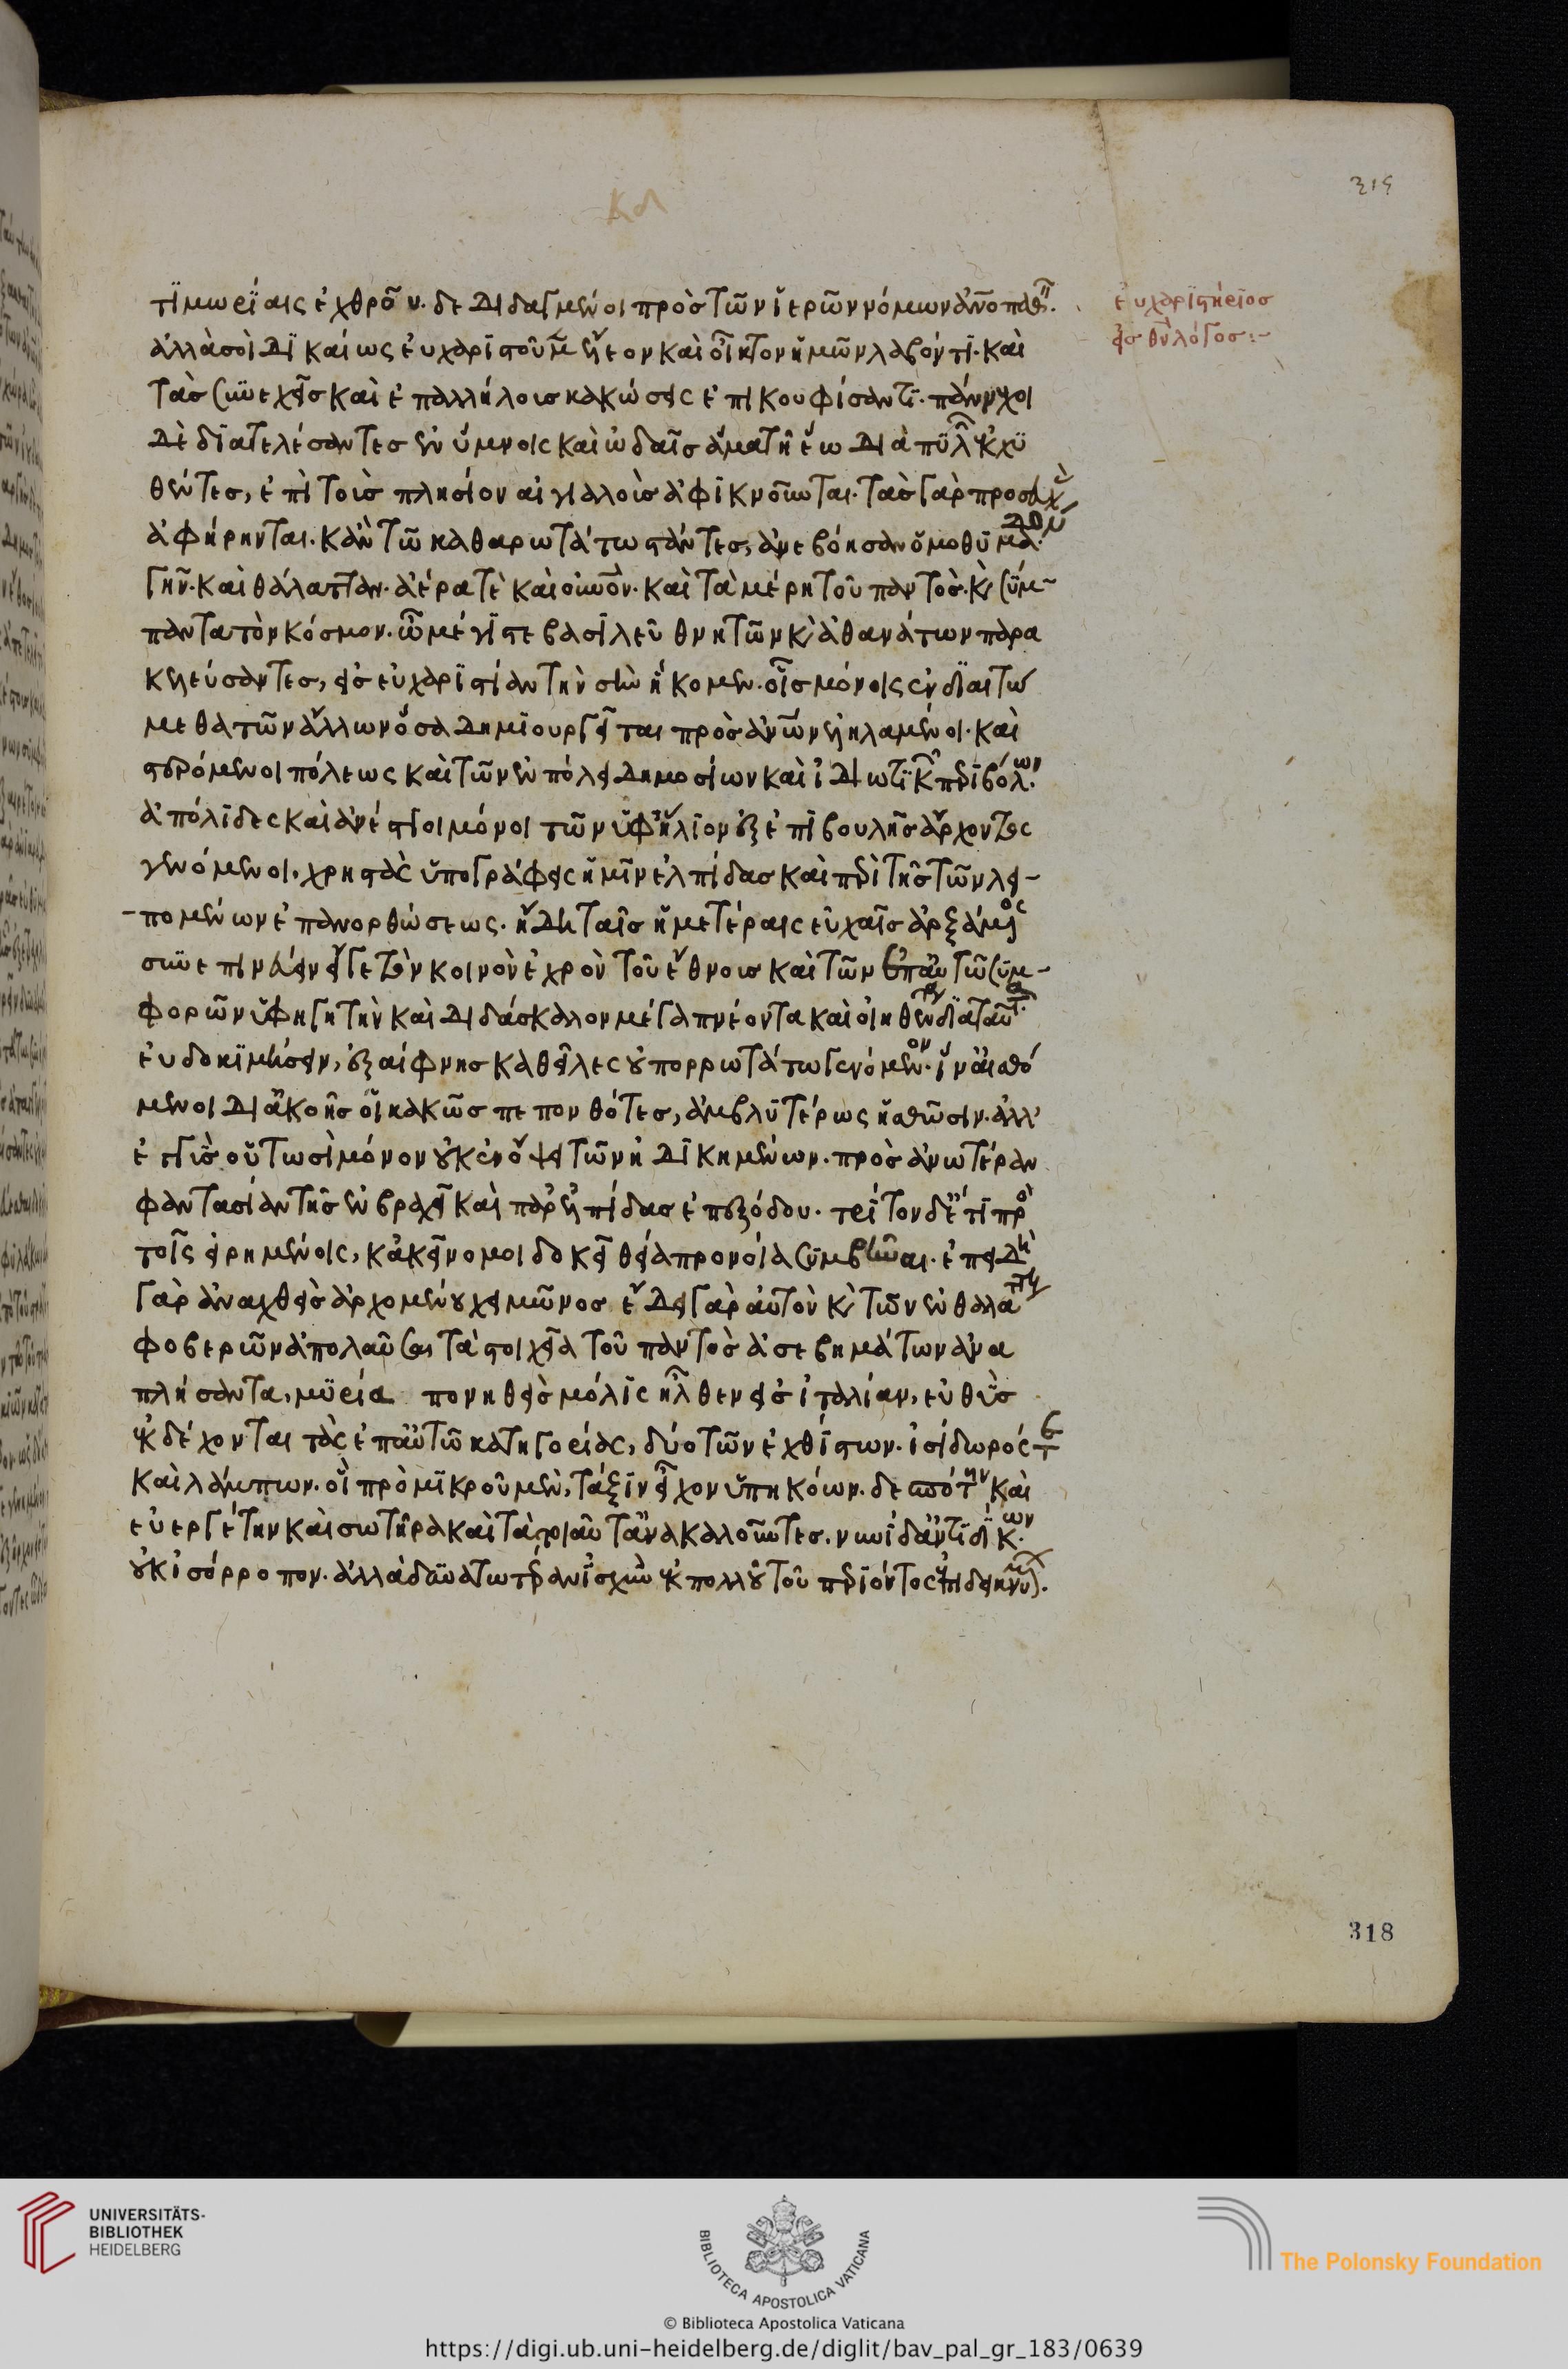 τϊμωρΐαις ἐχθροῦ. δεδιδαγμένοι πρὸς τῶν ἱερῶν νόμων ἀν̅ο̅παθ.
ἀλλὰ σοὶ δϊκαίως εὐχαριστοῦμεν ἔλεον καὶ οἶκτον ἡμῶν λαβόντϊ. καὶ
τὰς συνεχεῖς καὶ ἐπαλλήλους κακώσεις ἐπικουφίσαντϊ. πάννυχοι
δὲ διατελέσαντες ἐν ὕμνοις καὶ ὠδαῖς ἅμα τῆ ἕω διὰ πυλ ἐκχυ
θέντες, ἐπὶ τοὺς πλησίον αἰγιαλοὺς ἀφικνοῦνται. τὰς γὰρ προσευχ
ἀφήρηνται. κἀν τῶ καθαρωτάτω στάντες, ἀνεβόησαν ὁμοθυμαδόν.
γῆν. καὶ θάλατταν. ἀέρα τὲ καὶ οὐνον. καὶ τὰ μέρη τοῦ παντός. κ(αὶ) σύμ-
παντα τὸν κόσμον. ὦ μέγιστε βασιλεῦ θνητῶν κ(αὶ) ἀθανάτων παρα
κλεύσαντες, εἰς εὐχαριστίαν τὴν σὴν ἥκομεν. οἷς μόνοις ἐνδιαιτώ
μεθα τῶν ἄλλων ὅσα δημϊουργεῖται πρὸς ἀνων ἐληλαμένοι. καὶ
στερόμενοι πόλεως καὶ τῶν ἐν πόλει δημοσίων καὶ ἰδιωτικ περιβόλων.
ἀπόλιδες καὶ ἀνέστιοι μόνοι τῶν ὑφ' ἥλιον ἐξ ἐπιβουλῆς ἄρχοντος
γενόμενοι. χρηστὰς ὑπογράφεις ἡμῖν ἐλπίδας καὶ περὶ τῆς τῶν λει-
-πομένων ἐπανορθώσεως. ἤδη ταῖς ἡμετέραις εὐχαῖς ἀρξάμενος
συνεπινεύειν εἴγε τὸν κοινὸν ἐχρὸν τοῦ ἔθνους καὶ τῶν ἐπ' αὐτῶ συμ-
φορῶν ὑφηγητὴν καὶ διδάσκαλον μέγα πνέοντα καὶ οἰηθέντα διὰ ταῦτα
εὐδοκιμήσειν, ἐξαίφνης καθεῖλες οὐ πορρωτάτω γενόμενον. ἵν' αἰσθό
μενοι δι' ἀκοῆς οἱ κακῶς πεπονθότες, ἀμβλυτέρως ἡσθῶσιν. ἀλλ'
ἐγγὺς οὕτωσὶ μόνον οὐκ ἐν ὄψει τῶν ἠδικημένων. πρὸς ἀνωτέραν
φαντασίαν τῆς ἐν βραχεῖ καὶ παρ' ἐλπίδας ἐπεξόδου. τρίτον δ' ἔτι πρὸ
τοῖς εἰρημένοις, κἀκεῖνο μοι δοκεῖ θεία προνοία συμβῆναι. ἐπειδὴ
γὰρ ἀναχθεὶς ἀρχομένου χειμῶνος ἔδει γὰρ αὐτὸν κ(αὶ) τῶν ἐν θαλάττη
φοβερῶν ἀπολαῦσαι τὰ στοιχεῖα τοῦ παντὸς ἀσεβημάτων ἀνα
πλήσαντα, μυρία πονηθεὶς μόλις ἦλθεν εἰς ἰταλίαν, εὐθὺς
ἐκδέχονται τὰς ἐπ' αὐτῶ κατηγορίας, δύο τῶν ἐχθίστων. ἰσίδωρός τε
καὶ λάμπων. οἳ πρὸ μϊκροῦ μὲν, τάξιν εἶχον ὑπηκόων. δεσπότην καὶ
εὐεργέτην καὶ σωτῆρα καὶ τὰ τοιαῦτα ἀνακαλοῦντες. νυνὶ δ' ἀντιδίκων.
οὐκ ἰσόρροπον. ἀλλὰ δυνατωτέραν ἰσχὺν ἐκ πολλοῦ τοῦ περιόντος ἐπιδεικνυ.
εὐχαριστήριος
εἰς θν λόγος :-
318
UNIVERSITÄTS-
BIBLIOTHEK
HEIDELBERG
BIBLIOTECA APOSTOLICA VATICANA
© Biblioteca Apostolica Vaticana
The Polonsky Foundation
https://digi.ub.uni-heidelberg.de/diglit/bav_pal_gr_183/0639